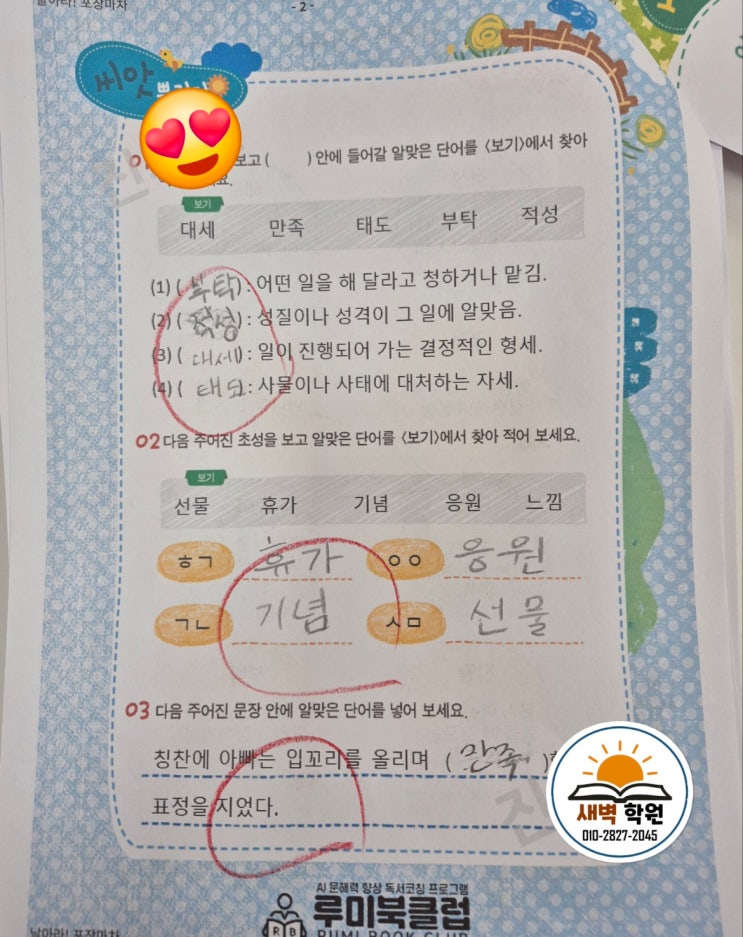 날아라! 포장마차
- 2 -
씨앗
보고 ( ) 안에 들어갈 알맞은 단어를 <보기>에서 찾아
요.
보기
대세 만족 태도 부탁 적성
(1) ( 부탁 ) : 어떤 일을 해 달라고 청하거나 맡김.
(2) ( 적성 ) : 성질이나 성격이 그 일에 알맞음.
(3) ( 대세 ) : 일이 진행되어 가는 결정적인 형세.
(4) ( 태도 ) : 사물이나 사태에 대처하는 자세.
02 다음 주어진 초성을 보고 알맞은 단어를 <보기>에서 찾아 적어 보세요.
보기
선물 휴가 기념 응원 느낌
ㅎㄱ 휴가 ㅇㅇ 응원
ㄱㄴ 기념 ㅅㅁ 선물
03 다음 주어진 문장 안에 알맞은 단어를 넣어 보세요.
칭찬에 아빠는 입꼬리를 올리며 ( 만족 )
표정을 지었다.
새벽 학원
010-2827-2045
AI 문해력 향상 독서코칭 프로그램
루미북클럽
RB RUMI BOOK CLUB
날아라! 포장마차